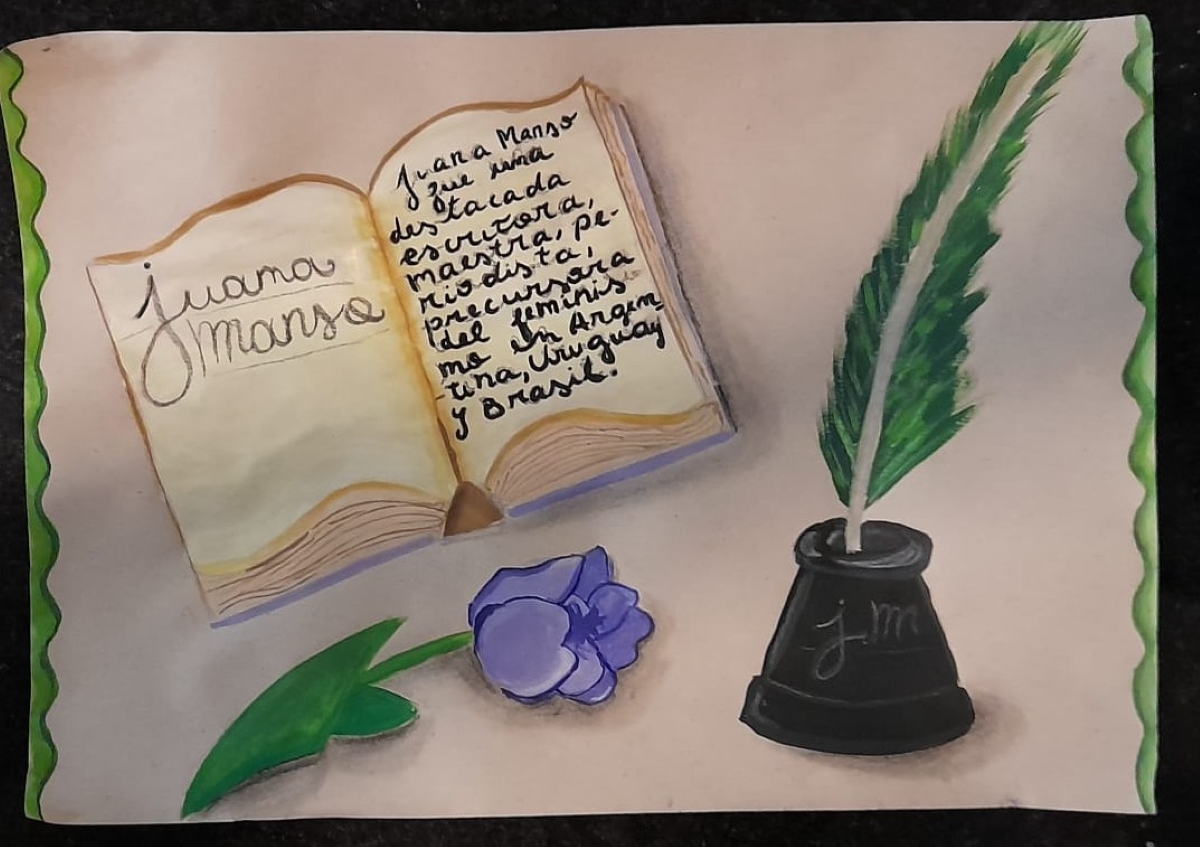 Juana
Manso
Juana Manso
fue una
destacada
escritora,
maestra, pe-
riodista,
precursora
del feminis
mo en Argen-
-tina, Uruguay
y Brasil.
j.m